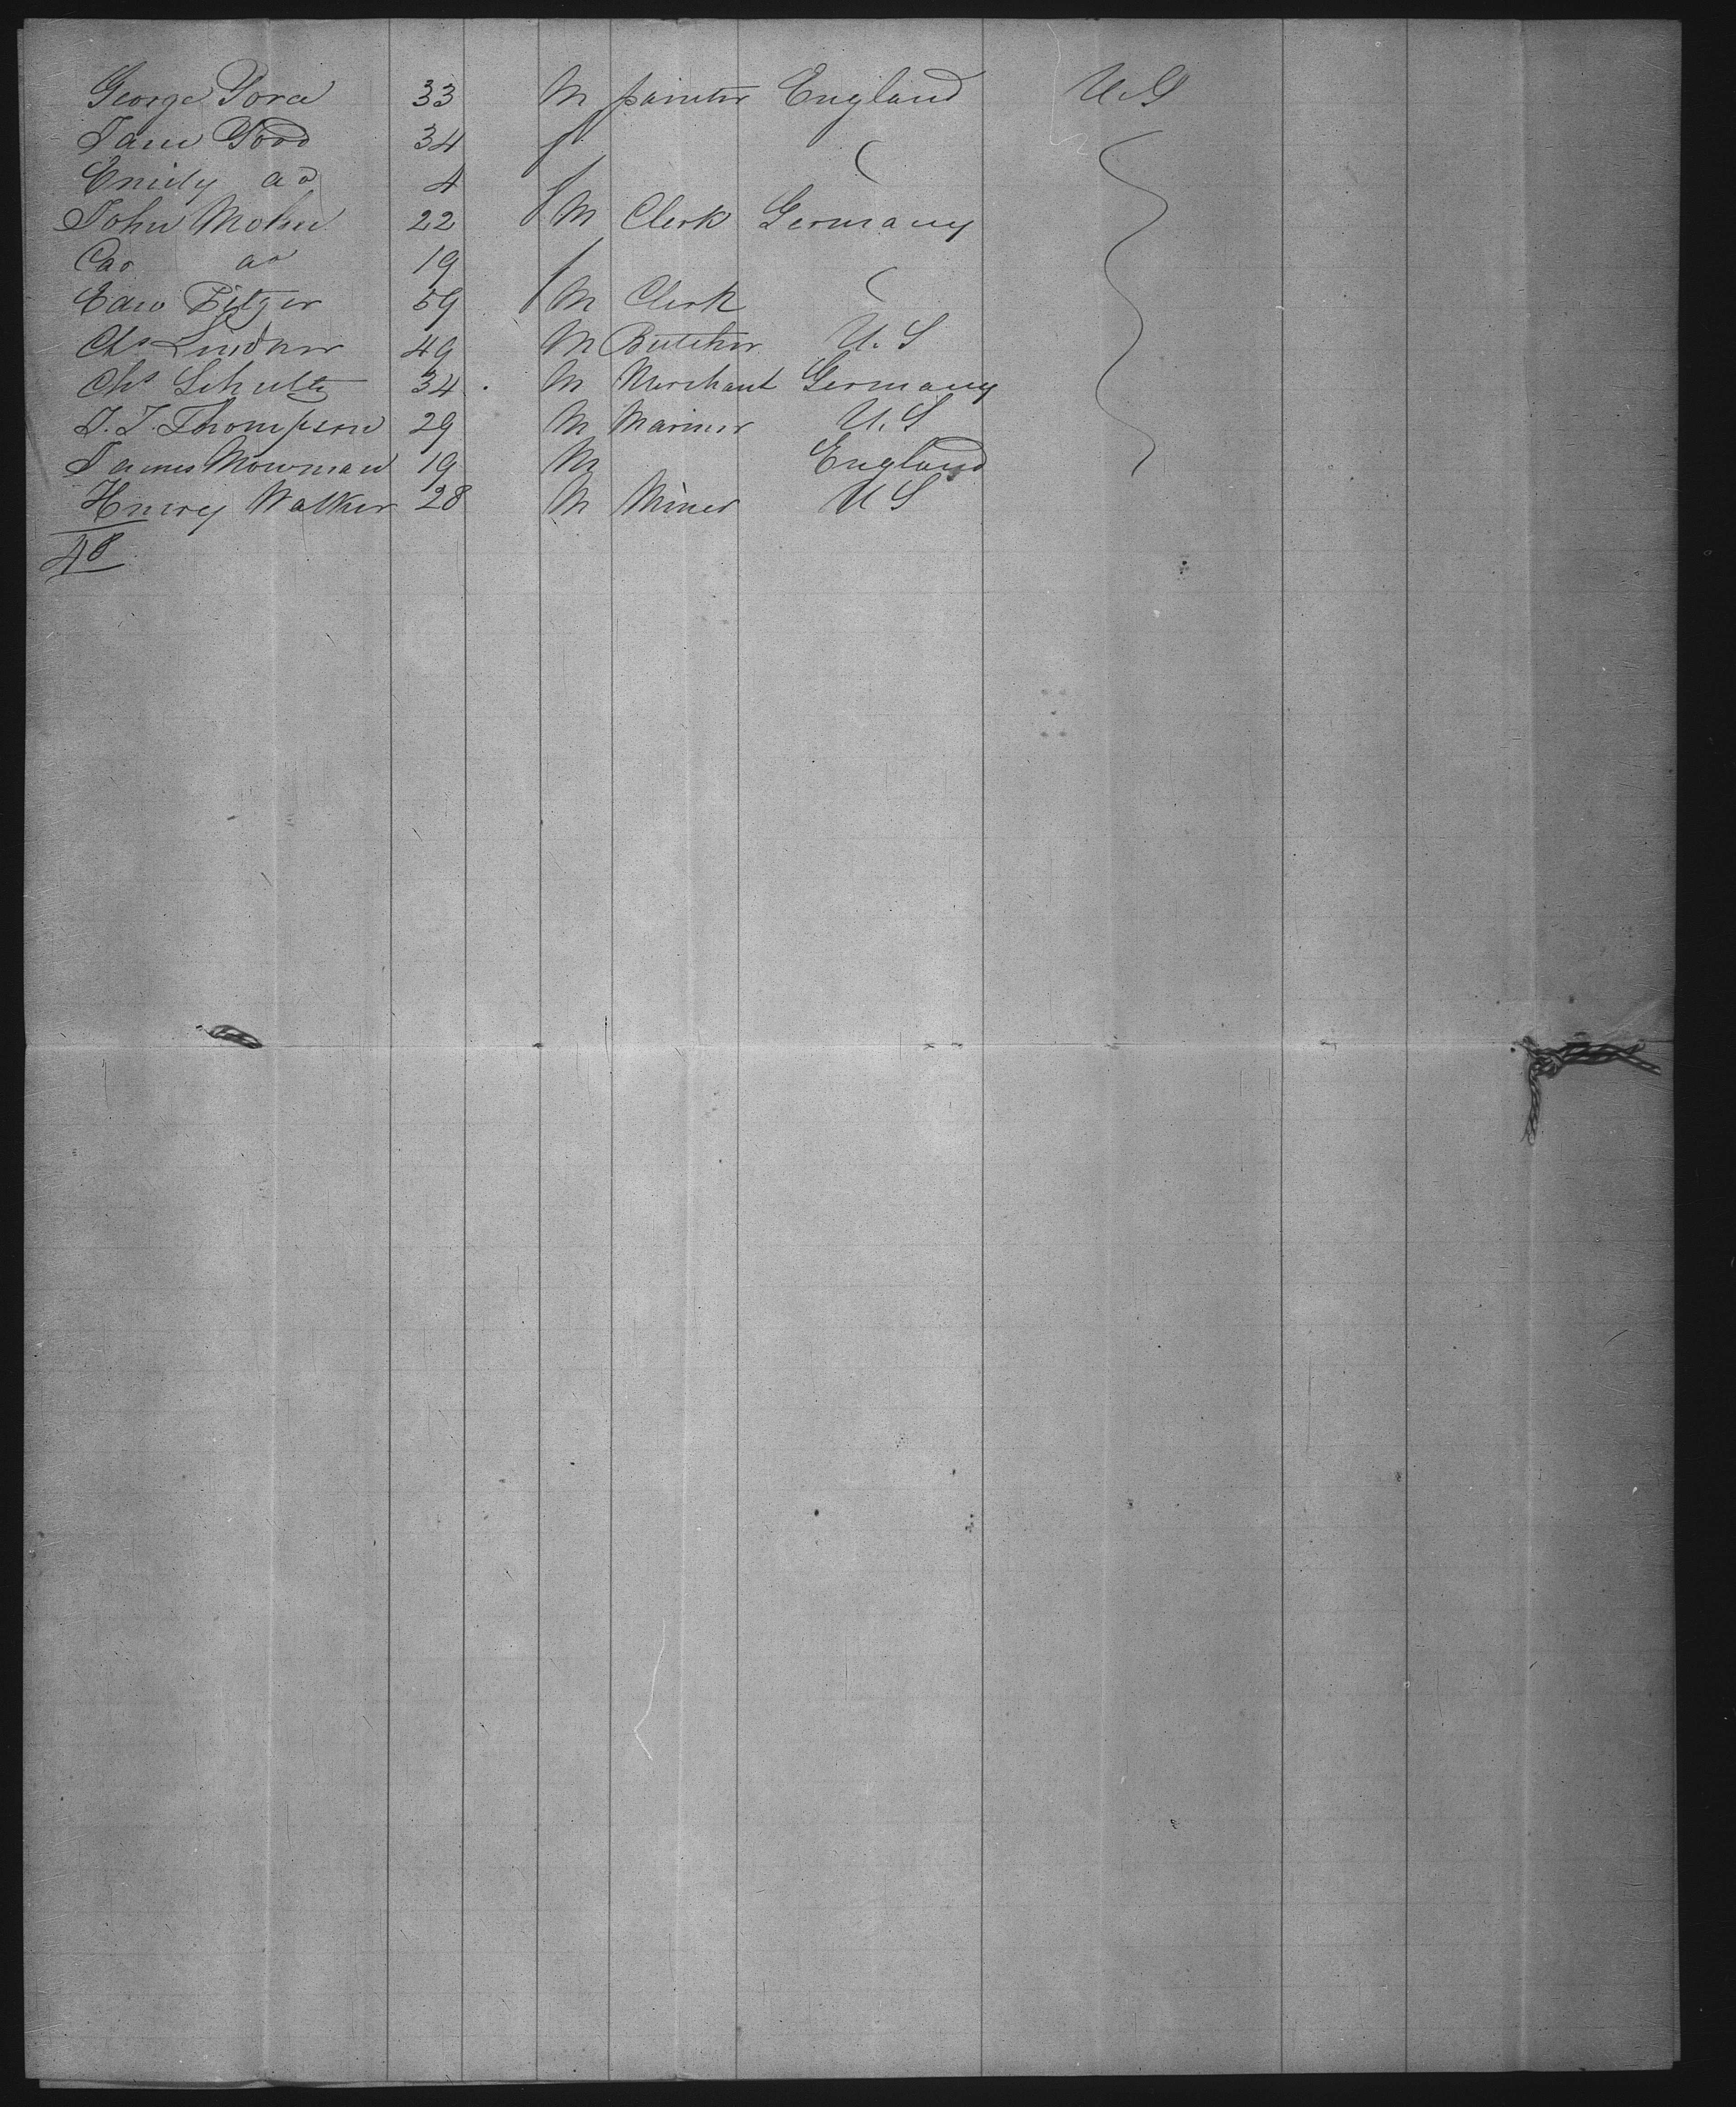 George 33 M painter England U.S
Jane 34 f (
Emily do 4 f
John Mohn 22 M Clerk Germany
Car do 19 f
Edw 59 M Clerk (
Chs Lindner 49 M Butcher U.S
Chs Schultz 34 M Merchant Germany
J. J. Thompson 29 M Mariner U.S
James Mowman 19 M England
Henry Walker 28 M Miner U S
48